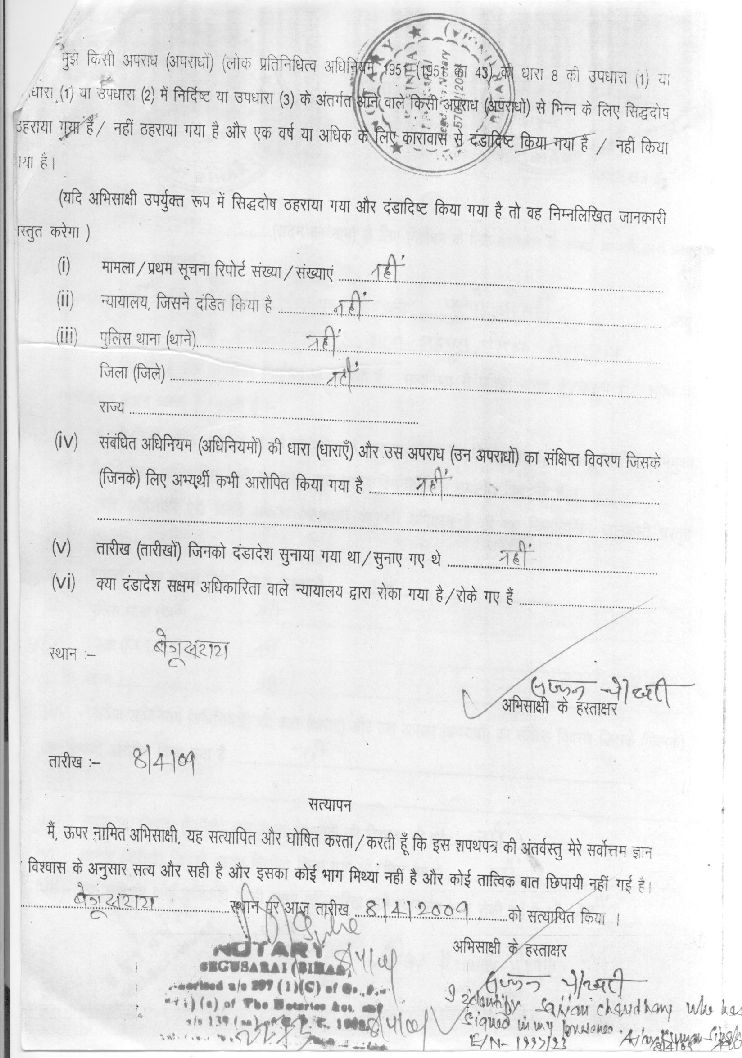 मुझे किसी अपराध (अपराधों) (लोक प्रतिनिधित्व अधिनियम, 1951 (1951 का 43) की धारा 8 की उपधारा (1) या
धारा (1) या उपधारा (2) में निर्दिष्ट या उपधारा (3) के अंतर्गत आने वाले किसी अपराध (अपराधों) से भिन्न के लिए सिद्धदोष
ठहराया गया है / नहीं ठहराया गया है और एक वर्ष या अधिक के लिए कारावास से दंडादिष्ट किया गया है / नही किया
गया है।
(यदि अभिसाक्षी उपर्युक्त रूप में सिद्धदोष ठहराया गया और दंडादिष्ट किया गया है तो वह निम्नलिखित जानकारी
स्तुत करेगा )
(i) मामला/प्रथम सूचना रिपोर्ट संख्या/संख्याएं नहीं
(ii) न्यायालय, जिसने दंडित किया है नहीं
(iii) पुलिस थाना (थाने) नहीं
जिला (जिले) नहीं
राज्य
(iv) संबंधित अधिनियम (अधिनियमों) की धारा (धाराएँ) और उस अपराध (उन अपराधों) का संक्षिप्त विवरण जिसके
(जिनके) लिए अभ्यर्थी कभी आरोपित किया गया है नहीं
(v) तारीख (तारीखों) जिनको दंडादेश सुनाया गया था/सुनाए गए थे नहीं
(vi) क्या दंडादेश सक्षम अधिकारिता वाले न्यायालय द्वारा रोका गया है/रोके गए हैं
स्थान :– बेगूसराय
सज्जन चौधरी
अभिसाक्षी के हस्ताक्षर
तारीख :– 8/4/09
सत्यापन
मैं, ऊपर नामित अभिसाक्षी, यह सत्यापित और घोषित करता/करती हूँ कि इस शपथपत्र की अंतर्वस्तु मेरे सर्वोत्तम ज्ञान
विश्वास के अनुसार सत्य और सही है और इसका कोई भाग मिथ्या नही है और कोई तात्विक बात छिपायी नहीं गई है।
बेगूसराय स्थान पर आज तारीख 8/4/2009 को सत्यापित किया ।
अभिसाक्षी के हस्ताक्षर
सज्जन चौधरी
NOTARY
BEGUSARAI (BIHAR)
u/s 297 (1)(C) of
(a) of The Notaries Act.
u/s 139
8/4/09
I identify Sajjan chaudhary who has
signed in my presence.
E/N- 1997/93